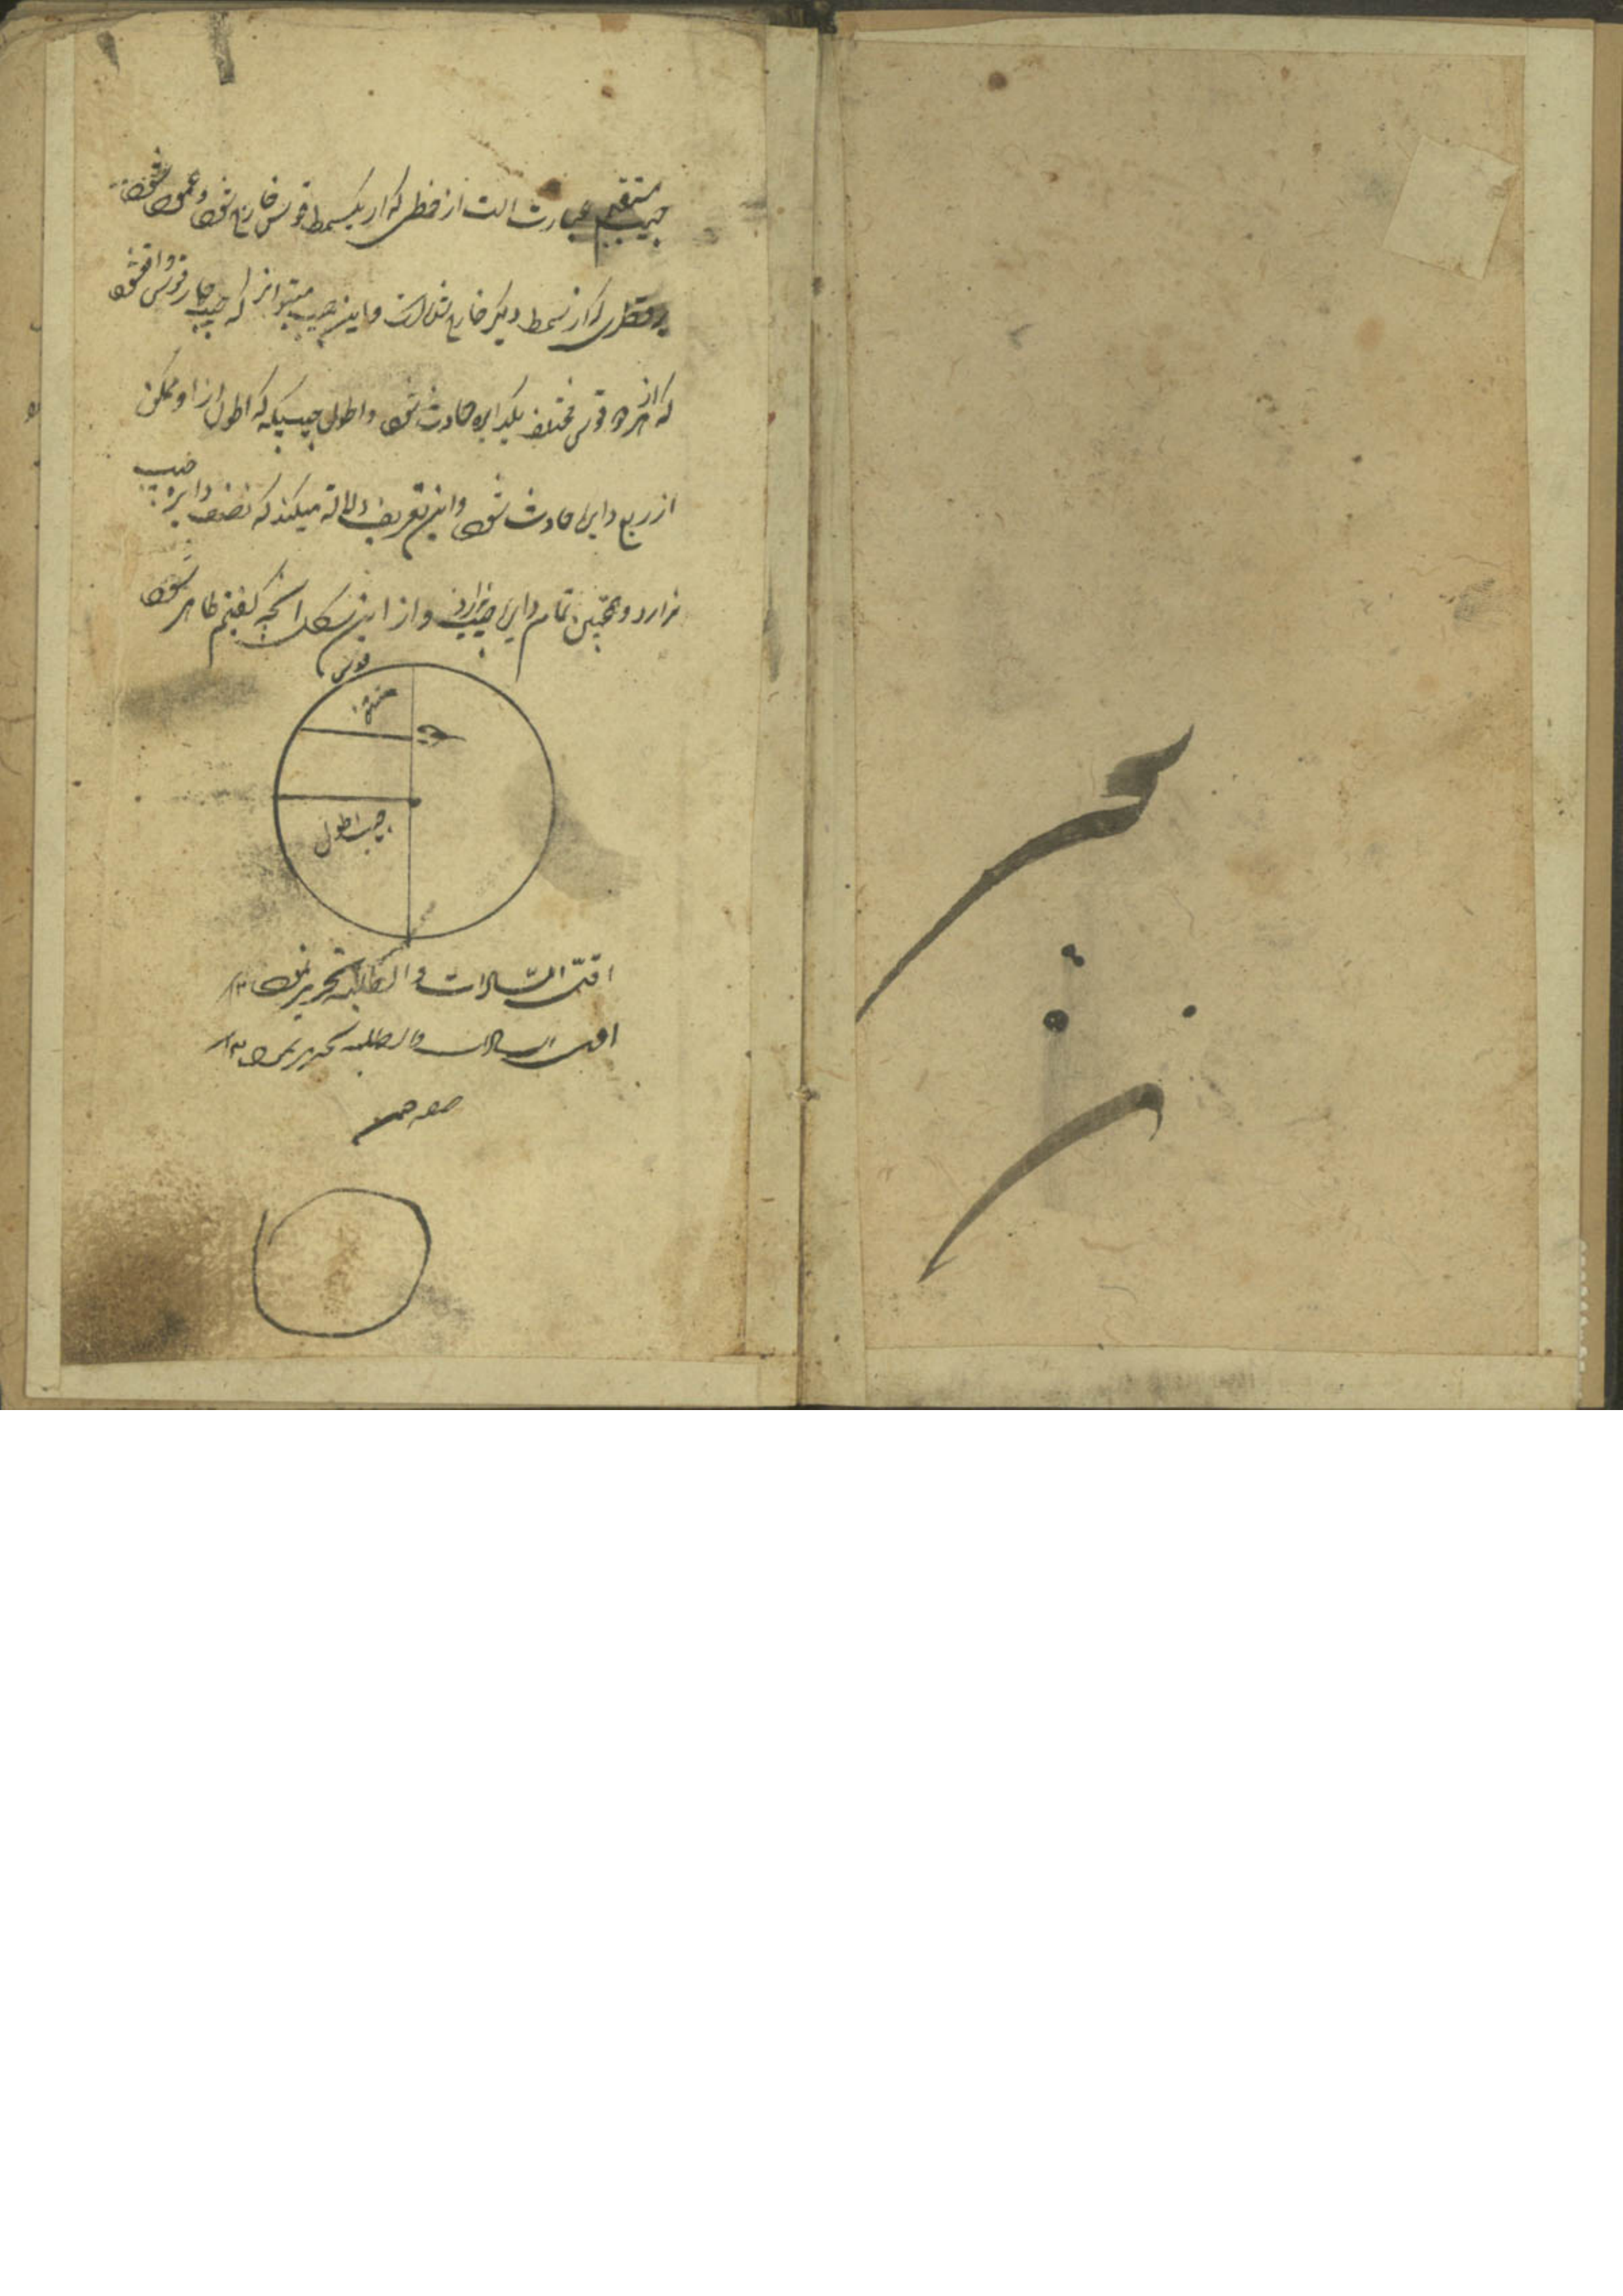 جیب مستقیم عبارت است از خطی که از یکسمط قوس خارج شود و عمود شود
بر قطری که از سمط دیگر خارج شده است و این جیب میتواند که جیب چهار قوس واقع شود
که از هر دو قوس مختلف یکدایره حادث شود و اطول جیبیکه که اطول از او ممکن
از ربع دایره حادث شود و این تعریف دلالة میکند که نصف دایره جیب
ندارد و همچنین تمام دایره جیب ندارد و از این شکل آنچه گفتیم ظاهر شود
قوس
جیب اطول
اقل السادات و الطلبه تحریر نمود ۱۳
اقل السادات والطلبه تحریر نمود ۱۳